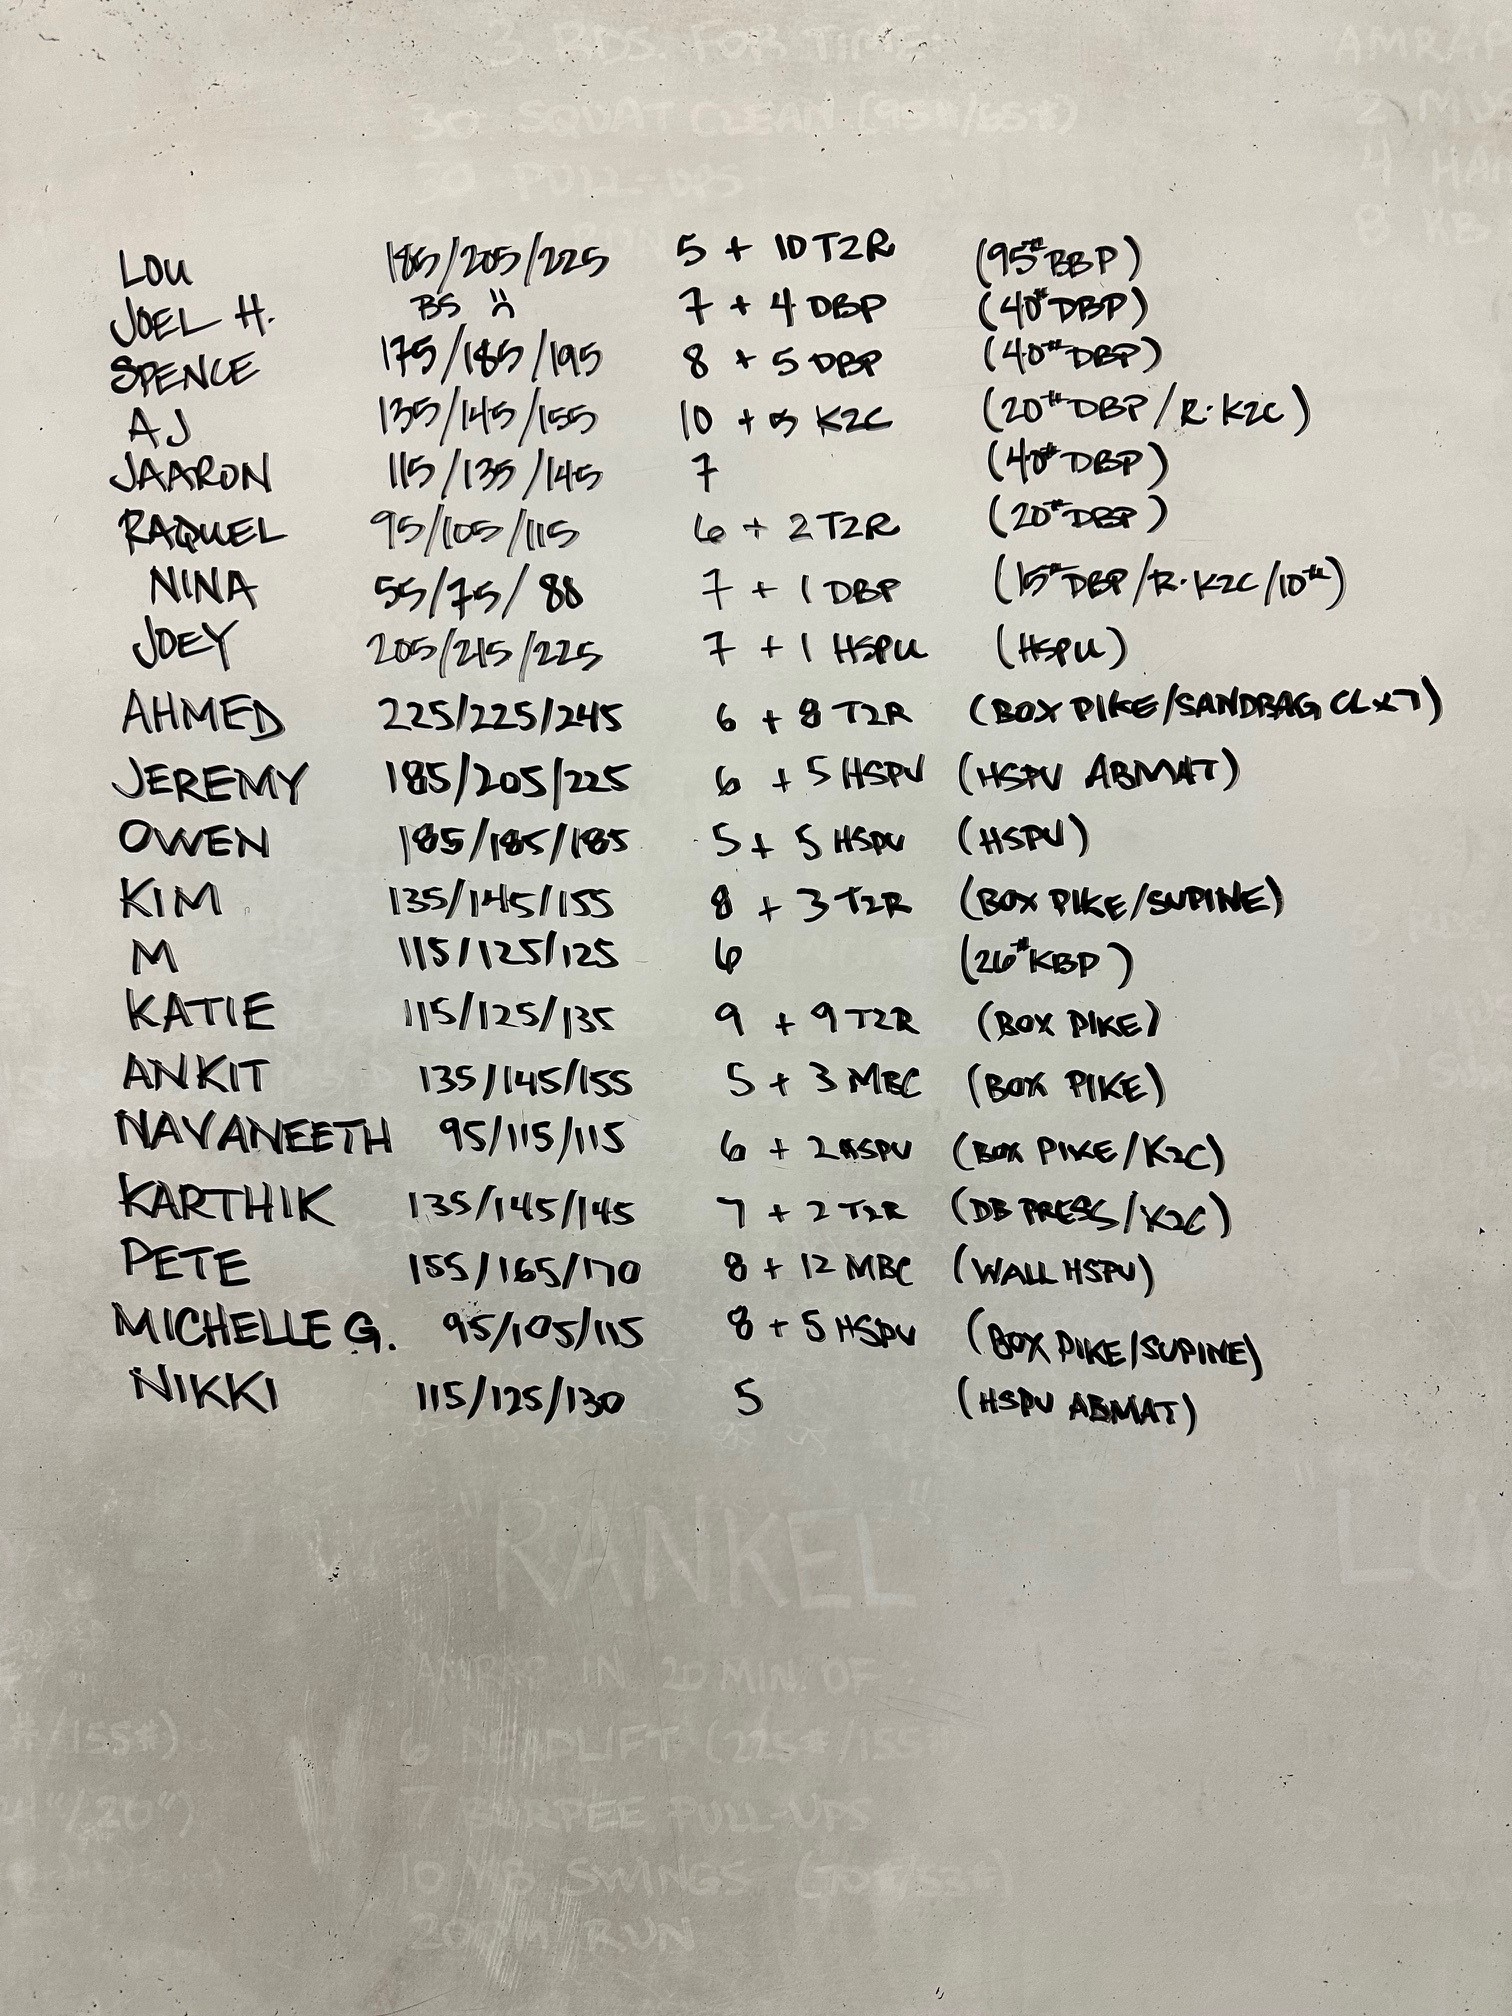 3 RDS. FOR TIME:
30 SQUAT CLEAN (95#/65#)
30 PULL-UPS
AMRAP
2
4
8 KB
LOU 185/205/225 5 + 10 T2R (95# BBP)
JOEL H. BS 7 + 4 DBP (40# DBP)
SPENCE 175/185/195 8 + 5 DBP (40# DBP)
AJ 135/145/155 10 + 5 K2C (20# DBP/R·K2C)
JAARON 115/135/145 7 (40# DBP)
RAQUEL 95/105/115 6 + 2 T2R (20# DBP)
NINA 55/75/88 7 + 1 DBP (15# DBP/R·K2C/10#)
JOEY 205/215/225 7 + 1 HSPU (HSPU)
AHMED 225/225/245 6 + 8 T2R (BOX PIKE/SANDBAG CLx7)
JEREMY 185/205/225 6 + 5 HSPU (HSPU ABMAT)
OWEN 185/185/185 5 + 5 HSPU (HSPU)
KIM 135/145/155 8 + 3 T2R (BOX PIKE/SUPINE)
M 115/125/125 6 (26# KBP)
KATIE 115/125/135 9 + 9 T2R (BOX PIKE)
ANKIT 135/145/155 5 + 3 MBC (BOX PIKE)
NAVANEETH 95/115/115 6 + 2 HSPU (BOX PIKE/K2C)
KARTHIK 135/145/145 7 + 2 T2R (DB PRESS/K2C)
PETE 155/165/170 8 + 12 MBC (WALL HSPU)
MICHELLE G. 95/105/115 8 + 5 HSPU (BOX PIKE/SUPINE)
NIKKI 115/125/130 5 (HSPU ABMAT)
"RANKEL"
"LU
AMRAP IN 20 MIN. OF
6 DEADLIFT (225#/155#)
7 BURPEE PULL-UPS
10 KB SWINGS (70#/53#)
200M RUN
#/155#)
"/20")